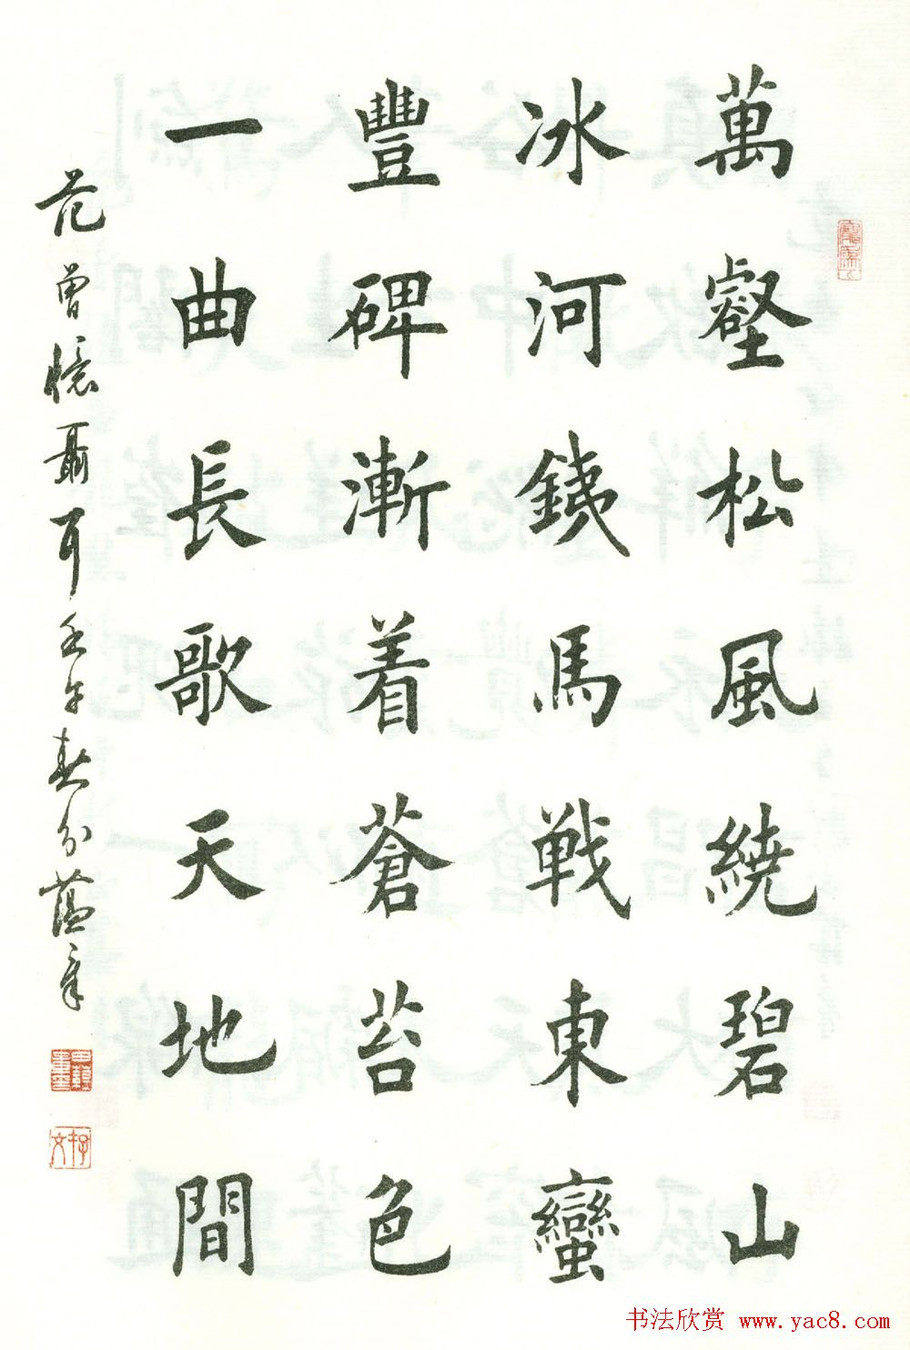 萬壑松風繞碧山
冰河銕馬戰東蠻
豐碑漸着蒼苔色
一曲長歌天地間
范曾憶聶耳壬午春分蘊章
书法欣赏 www.yac8.com